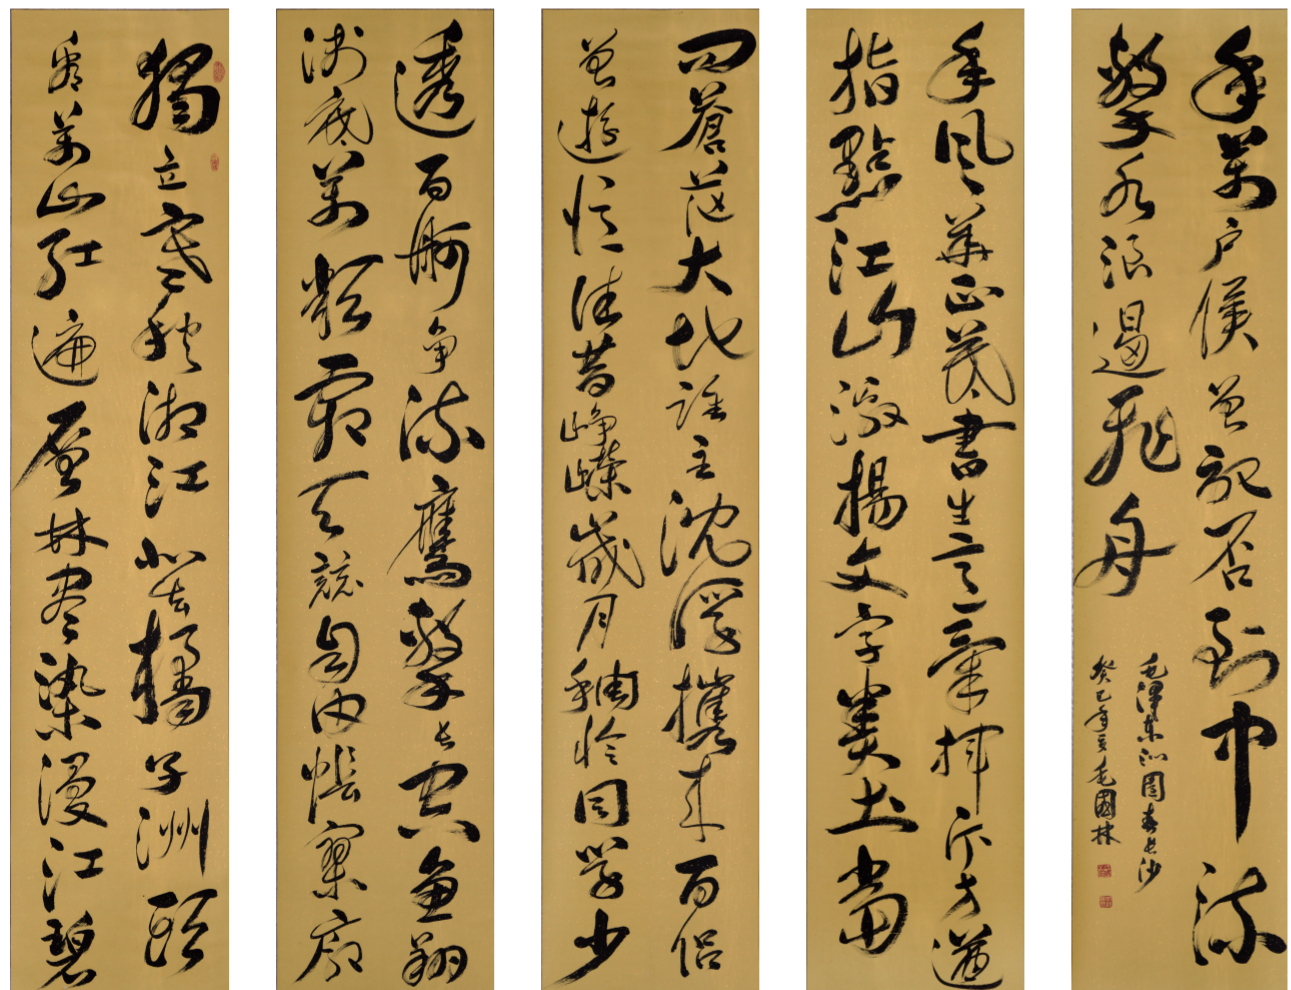 獨立寒秋湘江北去橘子洲頭
看萬山紅遍層林盡染漫江碧
透百舸爭流鷹擊長空魚翔
淺底萬類霜天競自由悵寥廓
問蒼茫大地誰主沈浮攜來百侶
曾遊憶往昔崢嶸歲月稠恰同學少
年風華正茂書生意氣揮斥方遒
指點江山激揚文字糞土當
年萬戶侯曾記否到中流
擊水浪遏飛舟
毛澤東沁園春長沙
癸巳年夏毛國林